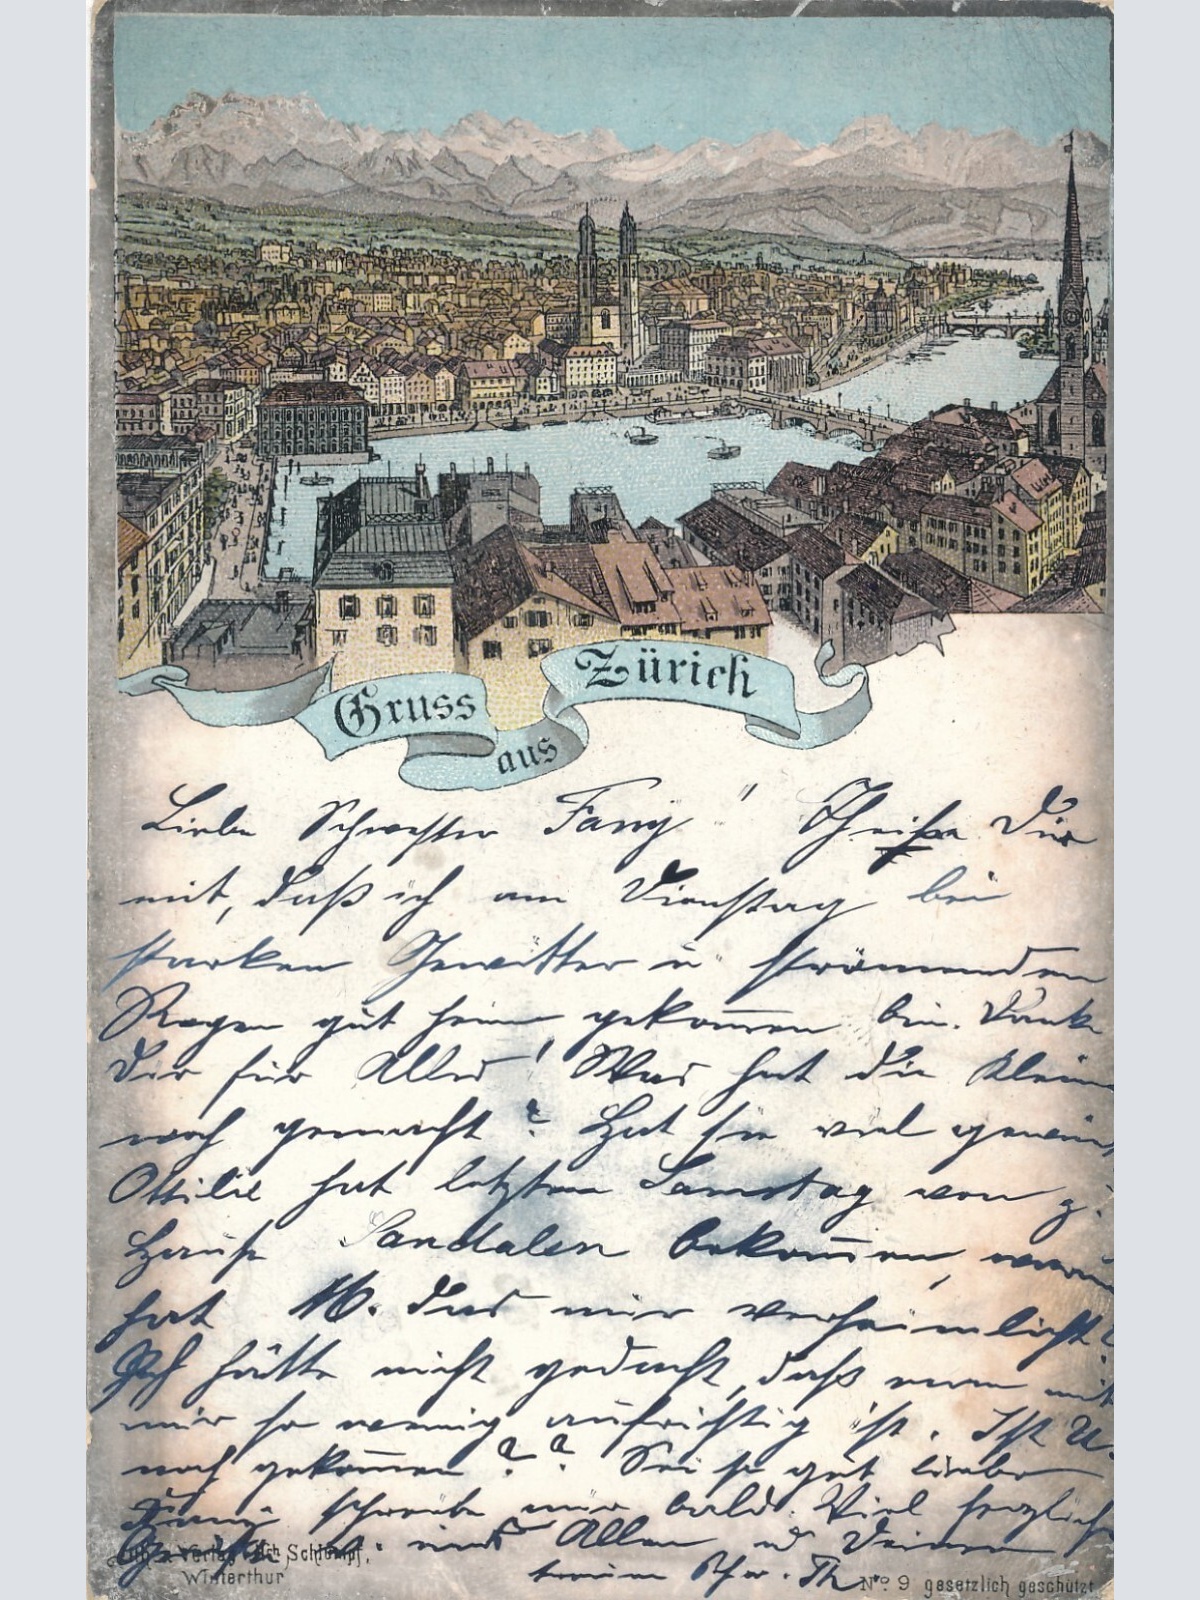 Gruss
aus
Zürich
Liebe Schwester Fany! Theile Dir
mit, daß ich am Dienstag bei
starken Gewitter u. strömenden
Regen gut heim gekom̅en bin. Danke
Dir für Alles! Was hat die Kleine
noch gemacht? Hat sie viel geweint
Ottilie hat letzten Samstag von z.
Hause Sandalen bekom̅en, warum
hat M. das mir verheimlicht?
Ich hätte nicht gedacht, daß man mit
mir so wenig aufrichtig ist. Ist U.
noch gekom̅en?? Sei so gut liebe
schreibe mir bald. Viel herzliche
Allen u Deinen
Schw. Th
Verlag Schlumpf,
Winterthur
No. 9 gesetzlich geschützt